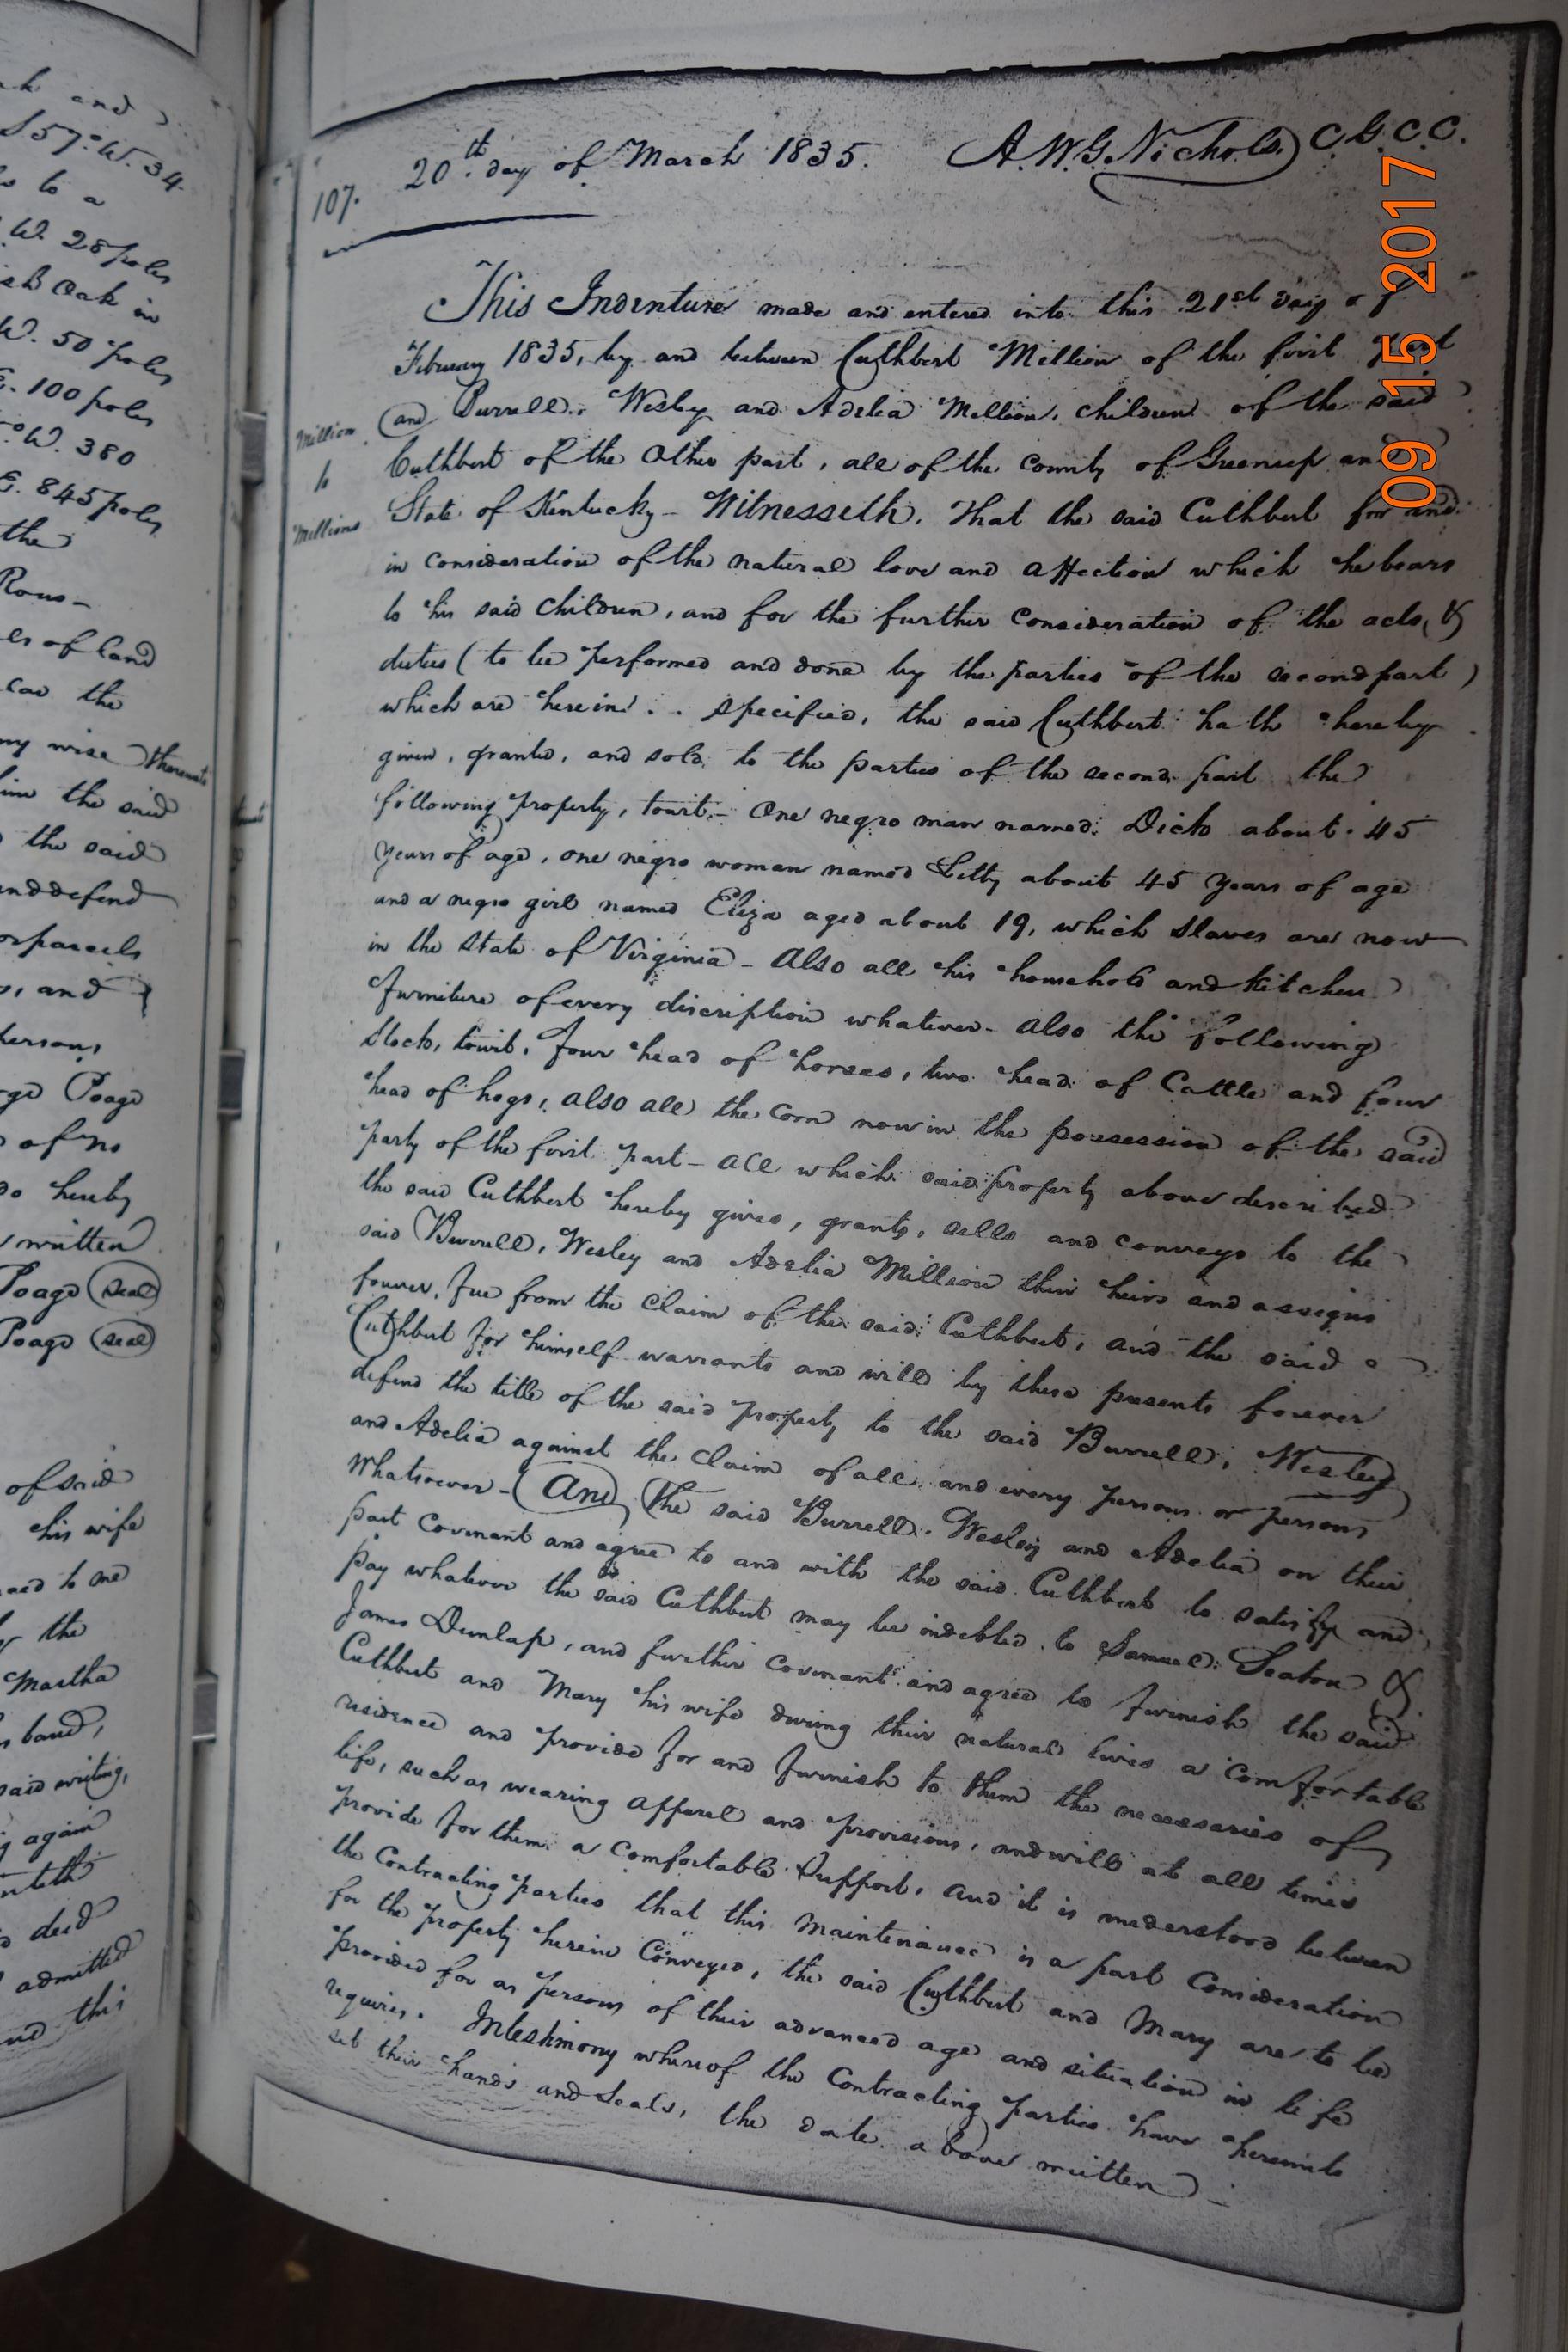 k and
S 57° W. 34
to a
W. 28 poles
Oak in
W. 50 poles
E. 100 poles
W. 380
E. 845 poles
the
Rous-
of land
the
wise thereunto
him the said
the said
and defend
or parcels
and
persons
Poage
of no
do hereby
written
Poage (seal)
Poage (seal)
of said
his wife
to me
the
Martha
band,
said writing,
again
deed
admitted
and this
107. 20th day of March 1835. A. W. G. Nichols C G. C. C.
This Indenture made and entered into this 21st day of
February 1835, by and between Cuthbert Million of the first part
and Burrell. Wesley and Adelia Million, children of the said
Million
to
Millions
Cuthbert of the Other part, all of the County of Greenup and
State of Kentucky - Witnesseth. That the said Cuthbert for and
in consideration of the natural love and affection which he bears
to his said children, and for the further consideration of the acts, &
duties (to be performed and done by the parties of the second part)
which are herein . . specified, the said Cuthbert hath hereby
given, granted, and sold to the parties of the second part the
following property, towit - One negro man named Dick about 45
years of age, one negro woman named Letty about 45 years of age
and a negro girl named Eliza aged about 19, which slaves are now
in the State of Virginia - Also all his household and kitchen
furniture of every discription whatever - also the following
stock, towit, four head of horses, two head of Cattle and four
head of hogs, also all the corn now in the possession of the said
party of the first part - all which said property above described
the said Cuthbert hereby gives, grants, sells and conveys to the
said Burrell, Wesley and Adelia Million their heirs and assigns
forever, free from the claim of the said Cuthbert, and the said
Cuthbert for himself warrants and will by these presents forever
defend the title of the said property to the said Burrell, Wesley
and Adelia against the claim of all and every persons or persons
whatsoever - And the said Burrell. Wesley and Adelia on their
part covenant and agree to and with the said Cuthbert to satisfy and
pay whatever the said Cuthbert may be indebted to Samuel Seaton &
James Dunlap, and further covenant and agree to furnish the said
Cuthbert and Mary his wife during their natural lives a comfortable
residence and provide for and furnish to them the necessaries of
life, such as wearing apparel and provisions, and will at all times
provide for them a comfortable Support, and it is understood between
the contracting parties that this maintenance is a part Consideration
for the property herein Conveyed, the said Cuthbert and Mary are to be
provided for as persons of their advanced age and situation in life
requires. In testimony whereof the Contracting parties have hereunto
set their hands and Seals, the date above written -
09 15 2017